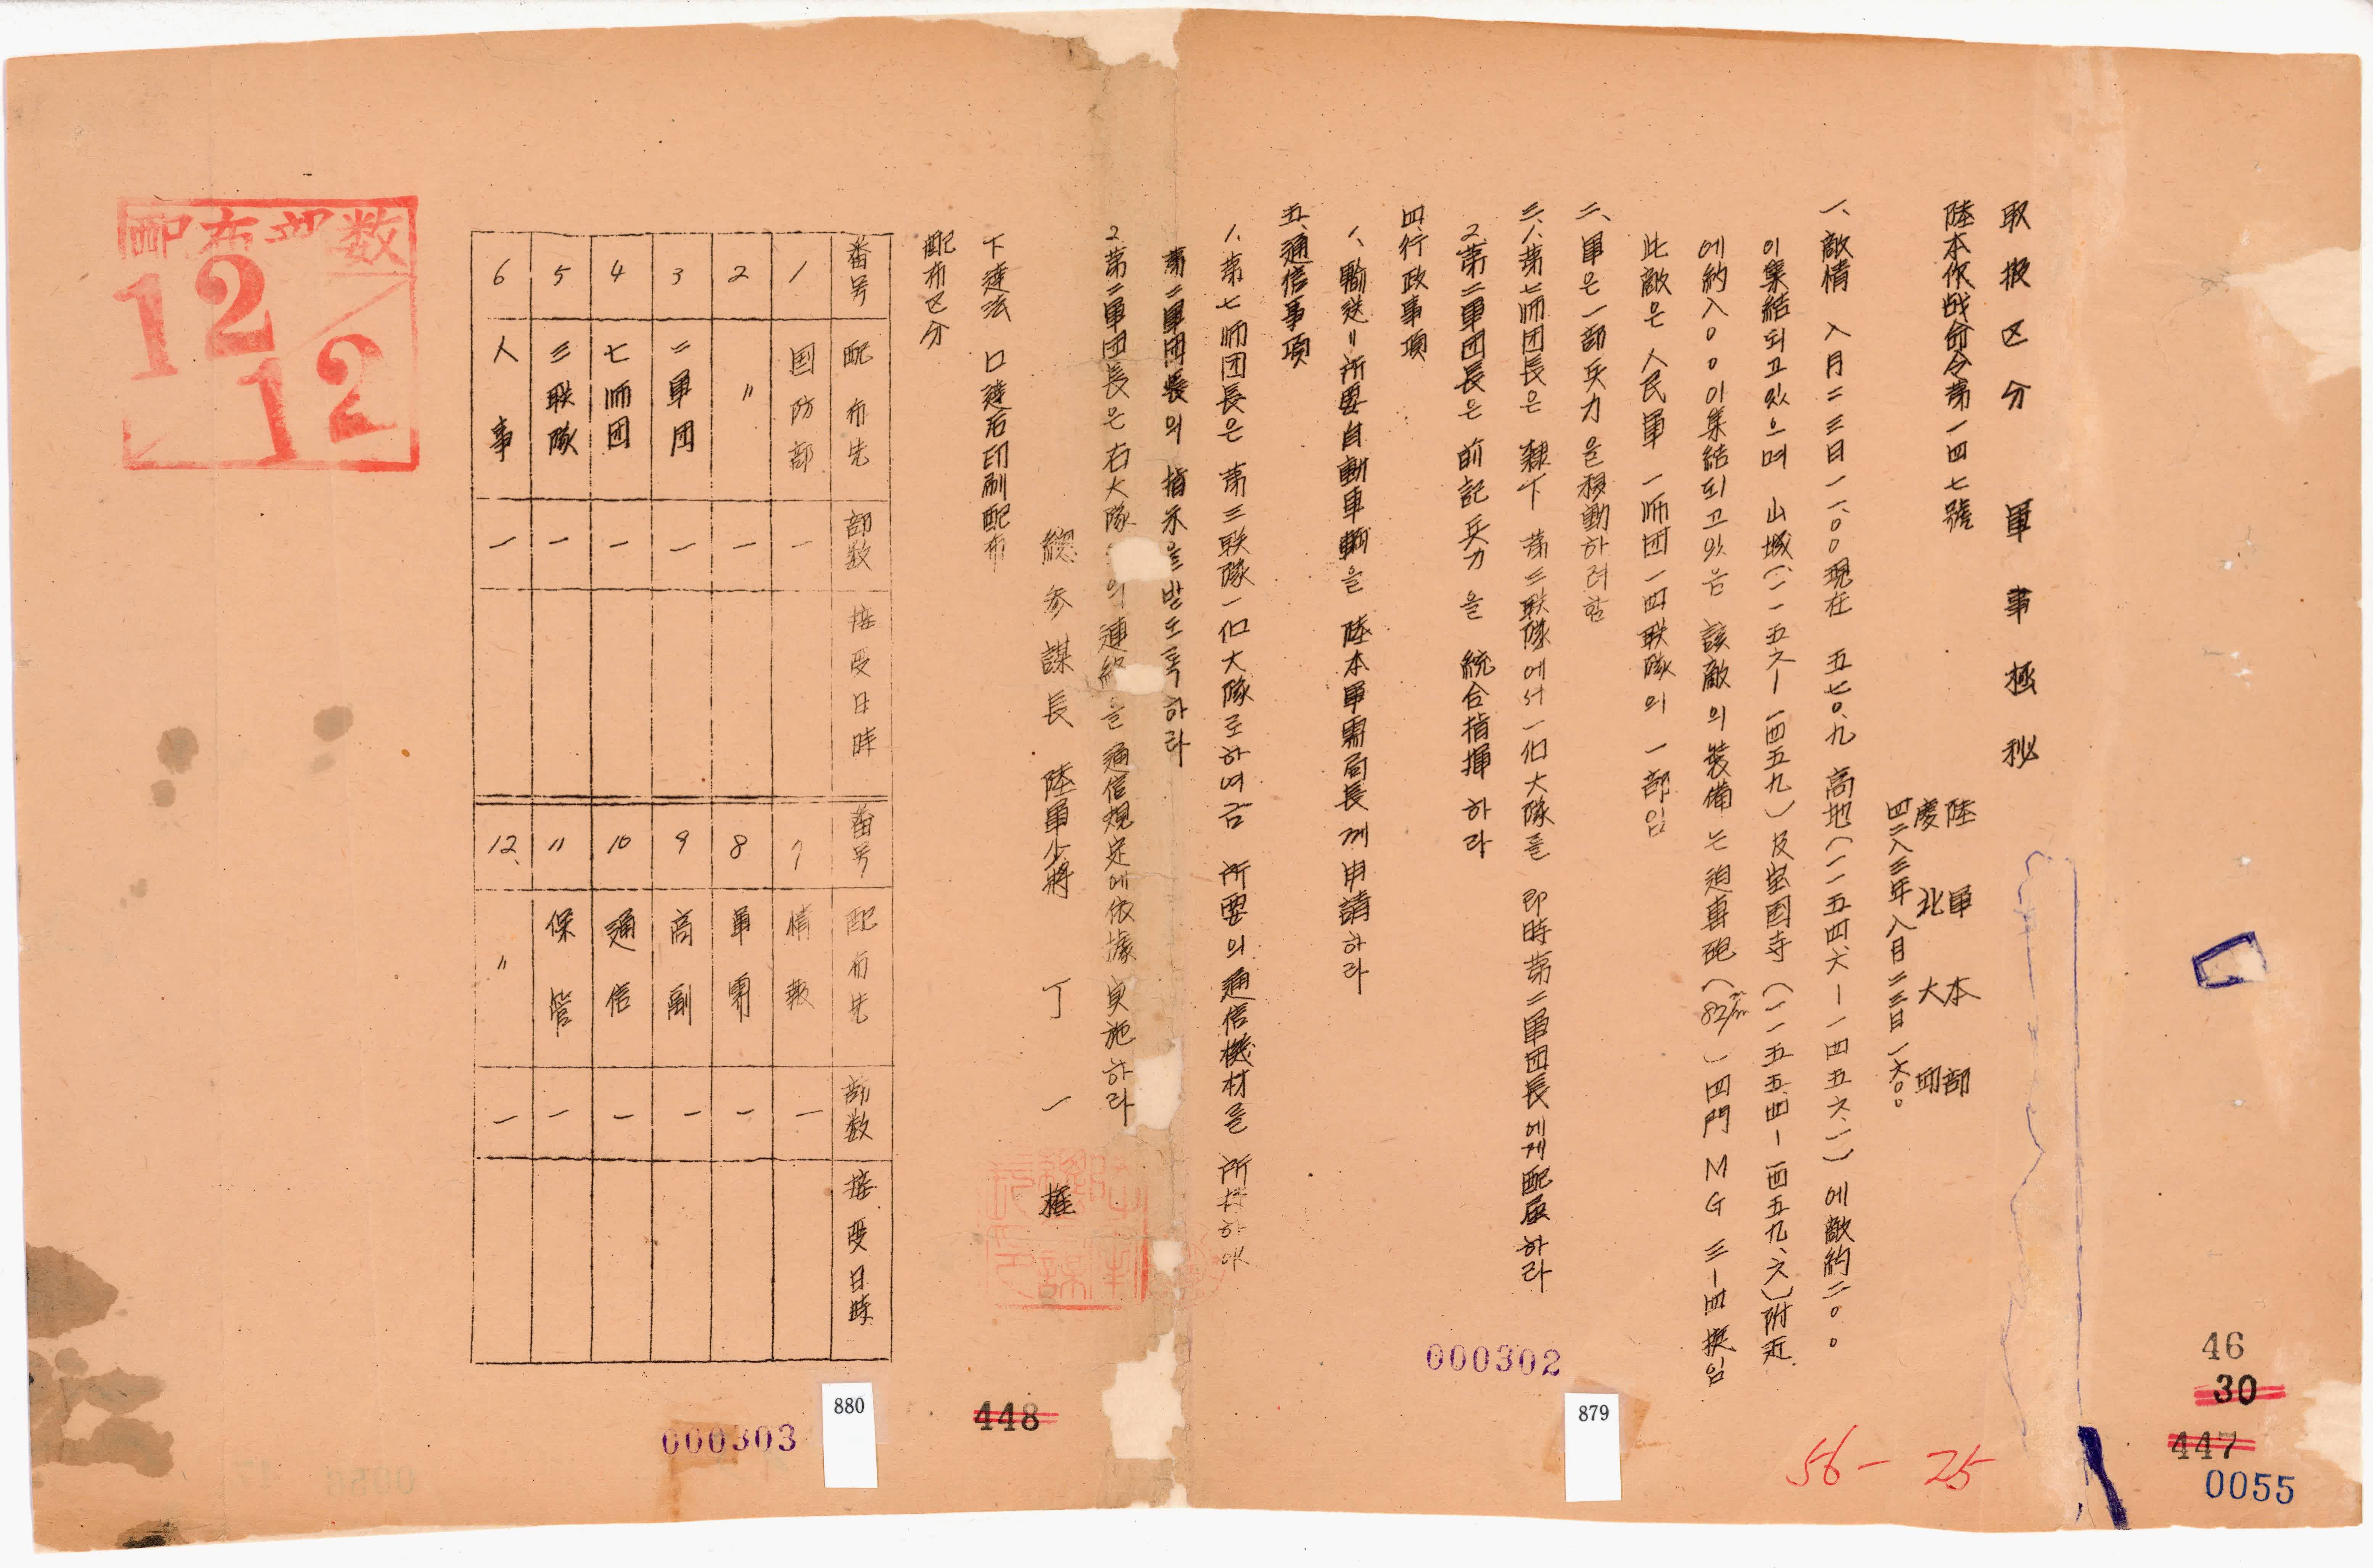 取扱区分 軍事極秘
陸本作战命令第一四七號
陸軍本部
慶北大邱
四二八三年八月二三日一六〇〇
一、敵情 八月二三日一一、〇〇現在 五七〇、九 高地(一一五四、六—一四五六、一)에敵約二〇〇
이集結되고있으며 山城(一一五六—一四五九)及宝国寺(一一五五、四—一四五九、六)附近
에約八〇〇이集結되고있음 該敵의裝備는迫専砲(82㎜)四門 MG 三—四挺임
此敵은 人民軍 一师団一四联隊의 一部임
二、軍은一部兵力을移動하려함
三、1、第七师团長은 隸下 第三联隊에서一個大隊를 即時第二軍团長에게配屬하라
2、第二軍团長은前記兵力을 統合指揮하라
四、行政事項
1、輸送=所要自動車輛을 陸本軍需局長께申請하라
五、通信事項
1、第七师团長은 第三联隊一個大隊로하여금 所要의通信機材를 所持하여
第二軍团長의 指示을받도록하라
2、第二軍团長은右大隊의連絡을通信規定에依據実施하라
總参謀長 陸軍少將 丁一權
下達法 口達后印刷配布
配布区分
番号 配布先 部数 接受日時
1 国防部 一
2 〃 一
3 二軍団 一
4 七师団 一
5 三联隊 一
6 人事 一
番号 配布先 部数 接受日時
7 情報 一
8 軍需 一
9 高副 一
10 通信 一
〃 保管 一
12、 〃 一
配布部数
12
12
000302
879
448
880
000303
56-25
46
30
447
0055